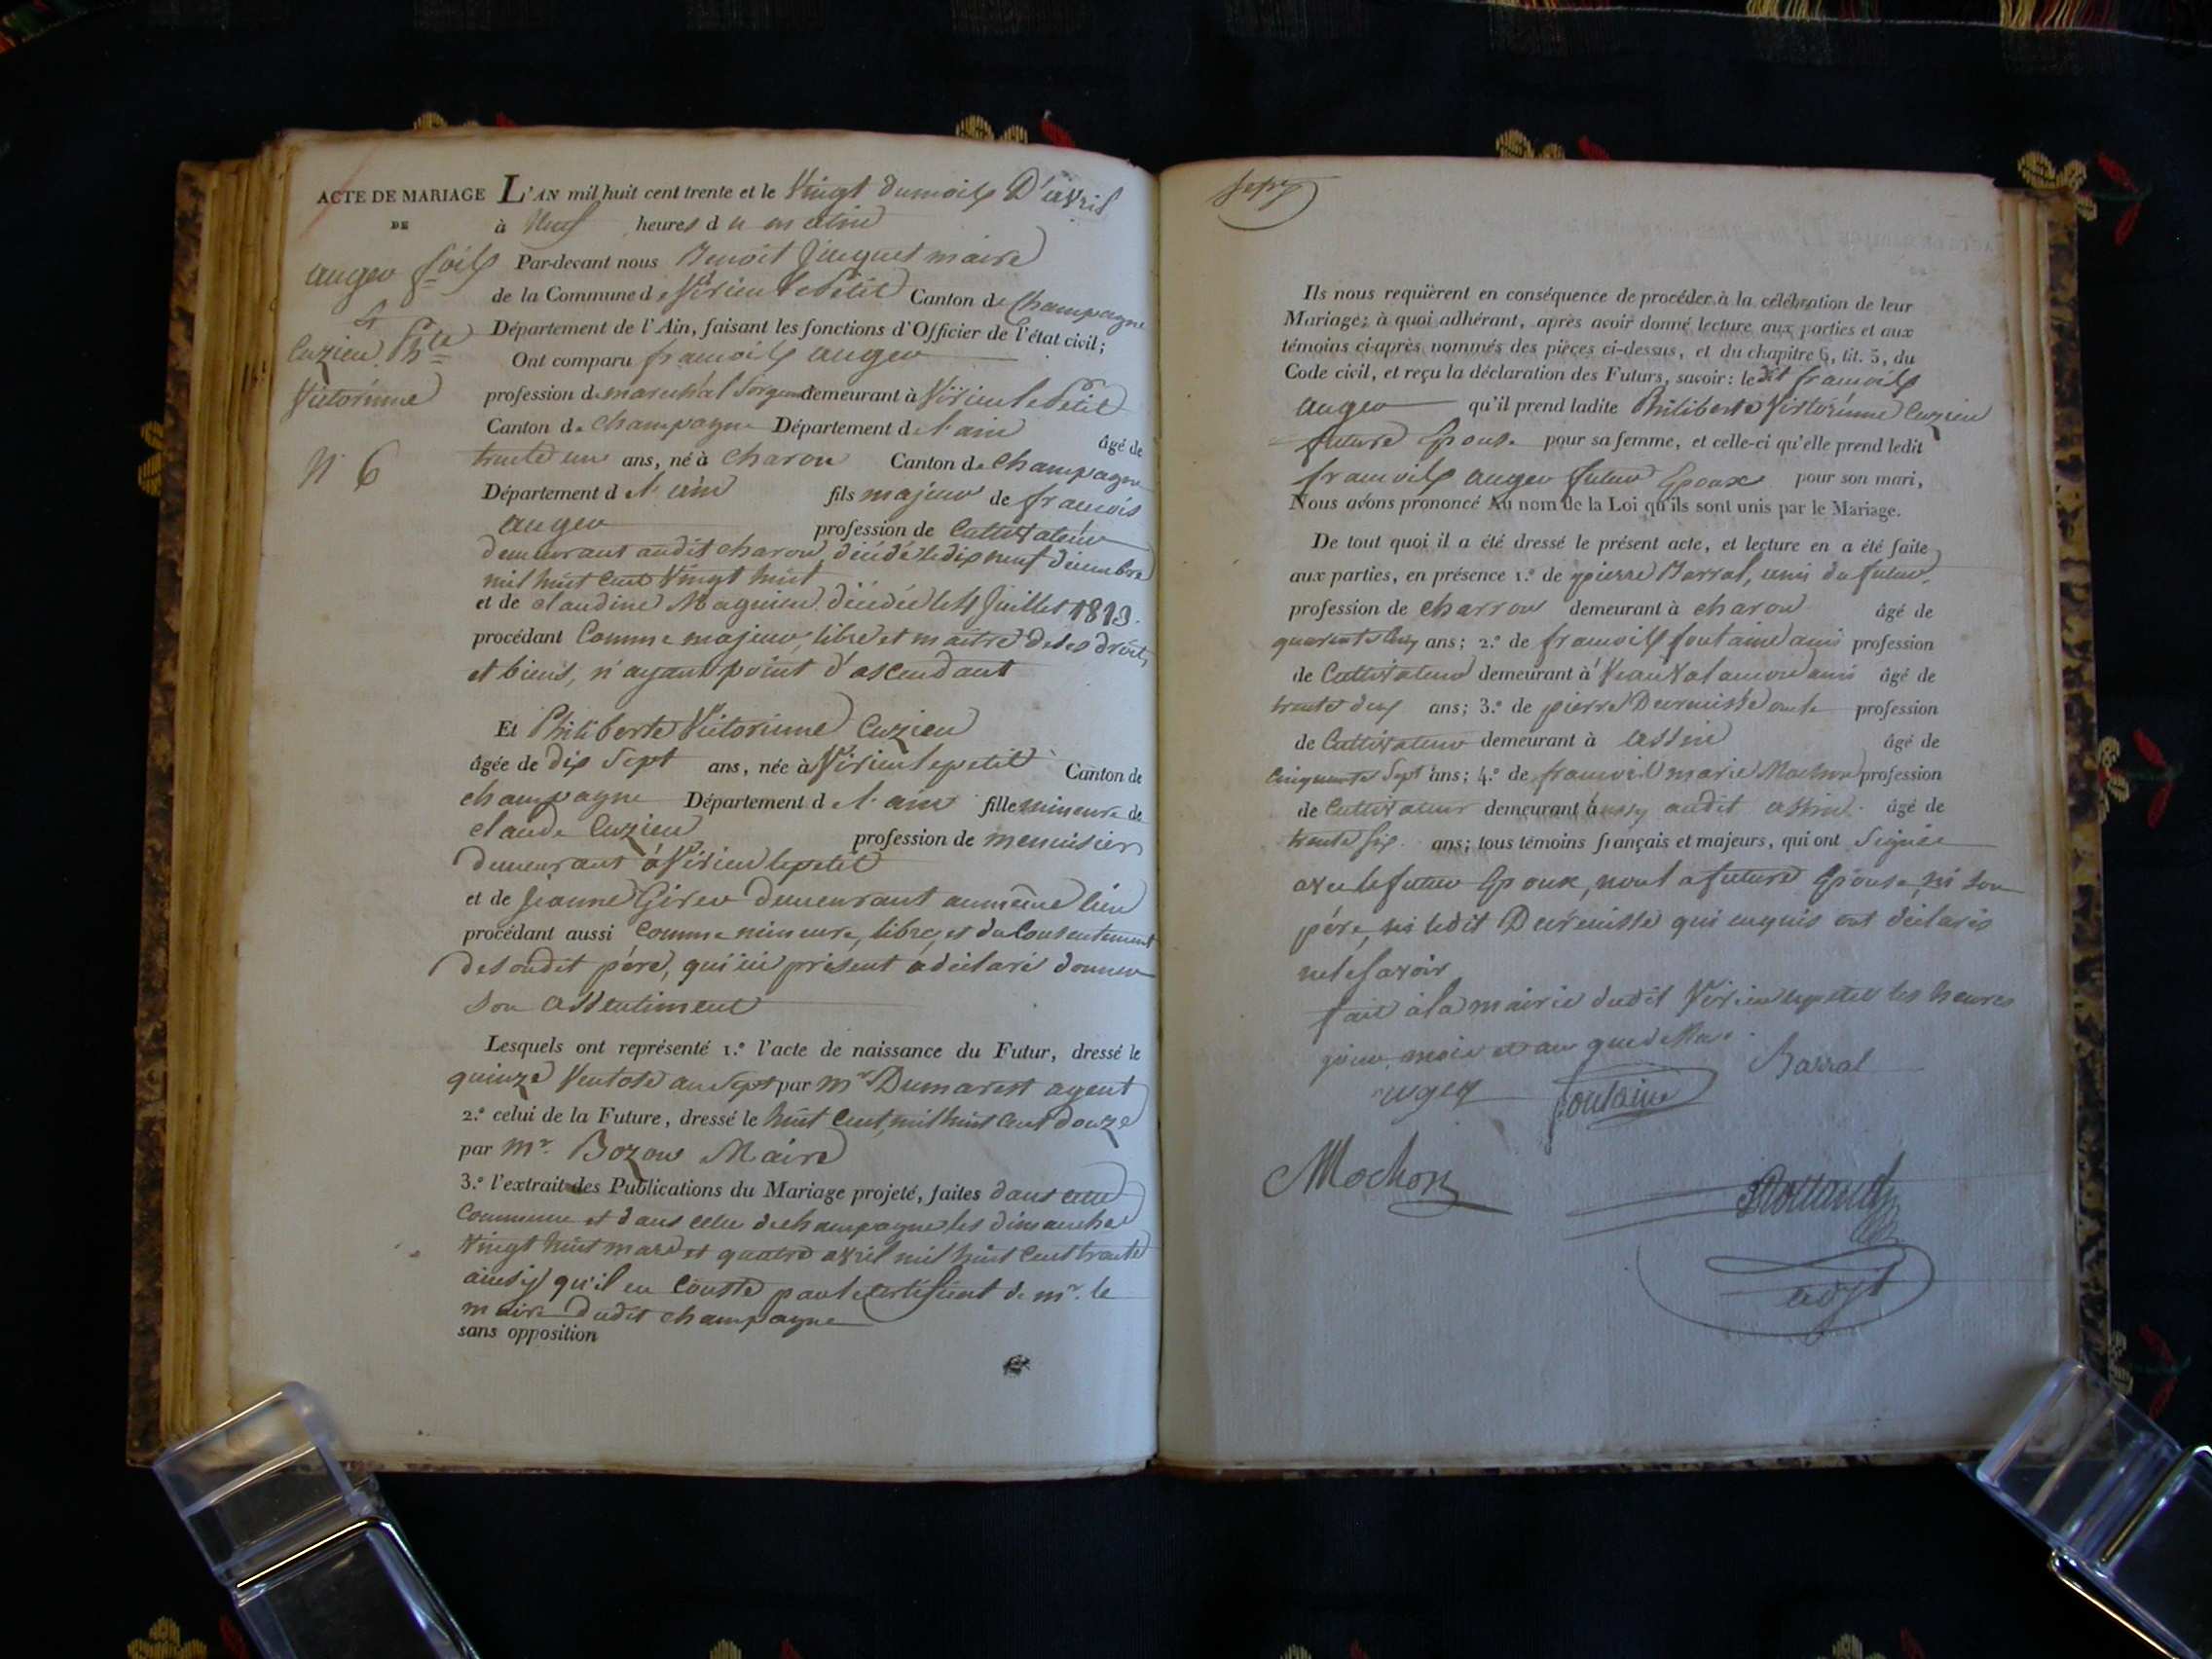 ACTE DE MARIAGE
DE
auger fois
et
Cuzieu Phte
Victorinne
N° 6
L'AN mil huit cent trente et le Vingt du mois D'avril
à Neuf heures du matin
Par-devant nous Benoit Juquet maire
de la Commune de Virieu le Petit Canton de Champagne
Département de l'Ain, faisant les fonctions d'Officier de l'état civil;
Ont comparu francois auger
profession de marechal forgeur demeurant à Virieu le Petit
Canton de Champagne Département de l'ain âgé de
trente un ans, né à charon Canton de Champagne
Département de l'ain fils majeur de francois
auger profession de Cultivateur
demeurant audit charon, décédé le dix neuf décembre
mil huit Cent Vingt huit
et de claudine Magnieu décédée le 4 Juillet 1813.
procédant Comme majeur, libre et maitre de ses droits
et biens, n'ayant point d'ascendant
Et Philiberte Victorinne Cuzieu
âgée de dix Sept ans, née à Virieu le petit Canton de
champagne Département de l'ain fille mineure de
claude Cuzieu profession de menuisier
demeurant à Virieu le petit
et de Jeanne Girer demeurant au même lieu
procédant aussi Comme mineure, libre, et du Consentement
de son dit père, qui ici présent a déclaré donner
son assentiment
Lesquels ont représenté 1.° l'acte de naissance du Futur, dressé le
quinze Ventose an Sept par mr Dumarest agent
2.° celui de la Future, dressé le huit mil huit Cent douze
par mr. Bozon Maire
3.° l'extrait des Publications du Mariage projeté, faites dans cette
Commune et dans celle de champagne les dimanches
Vingt huit mars et quatre avril mil huit Cent trente
ainsy qu'il en Conste par le certificat de mr. le
maire dudit champagne
sans opposition
Ils nous requièrent en conséquence de procéder à la célébration de leur
Mariage; à quoi adhérant, après avoir donné lecture aux parties et aux
témoins ci-après nommés des pièces ci-dessus, et du chapitre 6, tit. 5, du
Code civil, et reçu la déclaration des Futurs, savoir: le dit francois
auger qu'il prend ladite Philiberte Victorinne Cuzieu
future Epouse pour sa femme, et celle-ci qu'elle prend ledit
francois auger futur Epoux pour son mari,
Nous avons prononcé Au nom de la Loi qu'ils sont unis par le Mariage.
De tout quoi il a été dressé le présent acte, et lecture en a été faite
aux parties, en présence 1.° de pierre Barral, ami du futur,
profession de charron demeurant à charon âgé de
quarante ans; 2.° de francois fontaine ami profession
de Cultivateur demeurant à âgé de
trente deux ans; 3.° de pierre oncle profession
de Cultivateur demeurant à assin âgé de
Cinquante Sept ans; 4.° de francois marie Mochon profession
de Cultivateur demeurant aussy audit assin. âgé de
trente six ans; tous témoins français et majeurs, qui ont Signés
avec le futur Epoux, non la future Epouse, ni son
père, ni ledit qui enquis ont déclarés
ne le savoir
fait à la mairie dudit Virieu le petit les heures
jour, mois et an que dessus.
auger fontaine Barral
Mochon